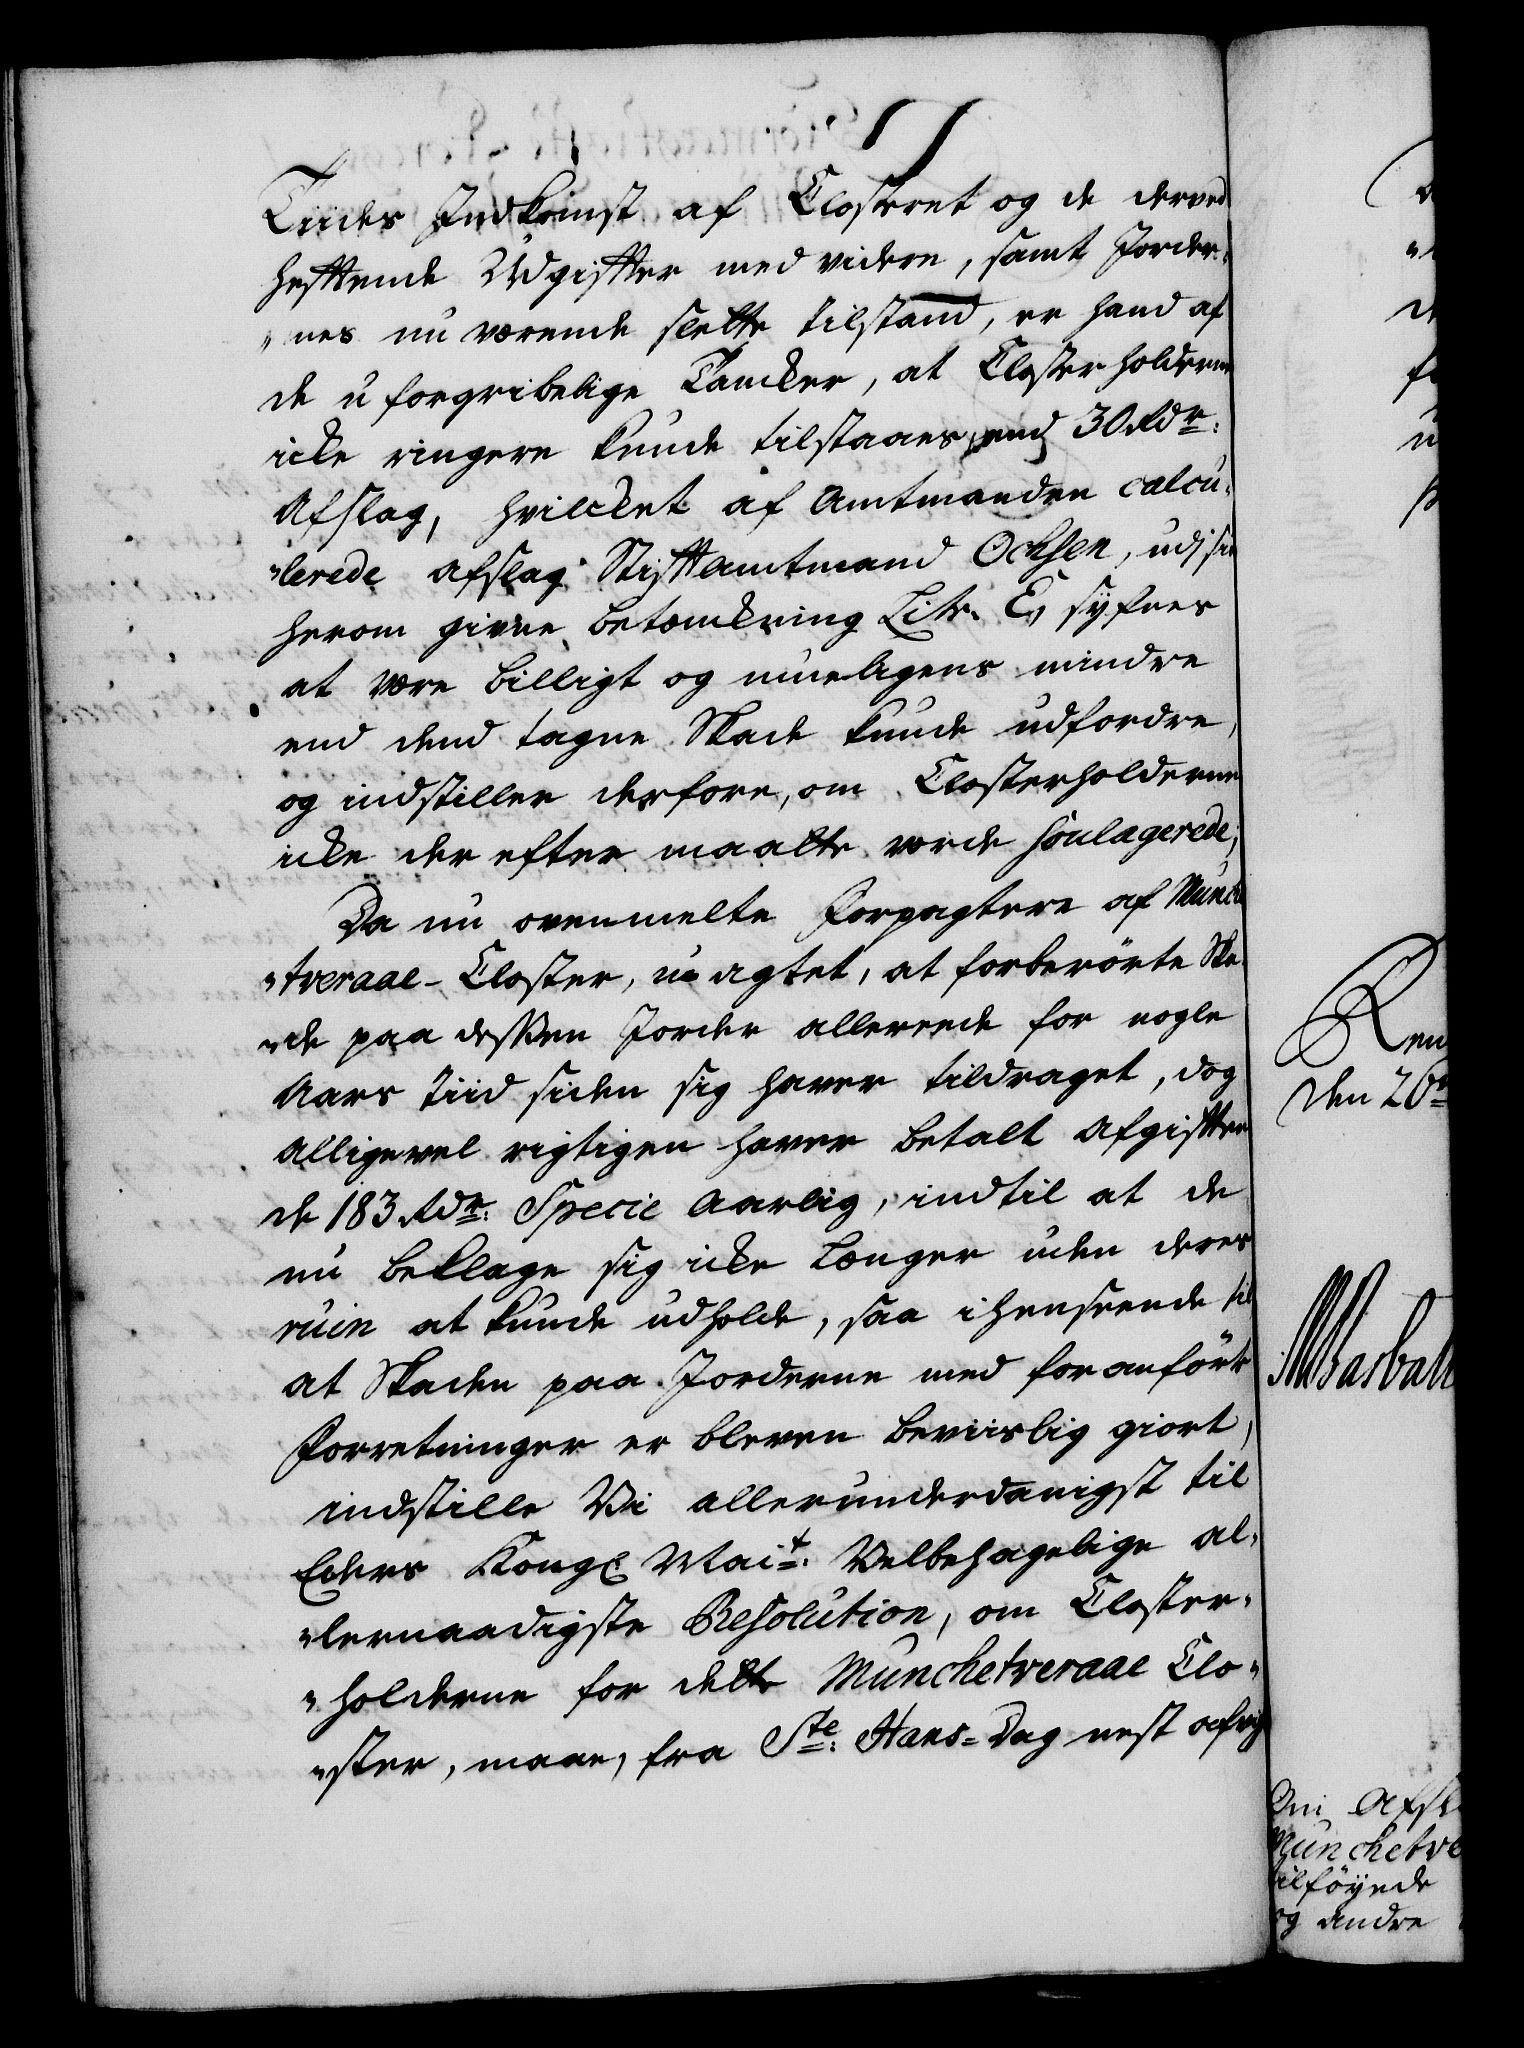 Tiides Indkomst af Closteret og de derved
hefftende Udgiffter med videre, samt Jorder-
„nes nu værende slette tilstand, er hand af
de uforgribelige Tancker, at Closterholderne
icke ringere kunde tilstaaes, end 30 Rdr:
Afslag, hvilcket af Amtmanden calcu-
„lerede afslag Stifftamtmand Ochsen, udj sin
herom givne betænckning Litr. E, sÿfnes
at være billigt og mueligens mindre
end dend tagne Skade kunde udfordre,
og indstiller derfore, om Closterholderne
icke der efter maatte vorde soulagerede,
Da nu ovenmelte Forpagtere af Munche
„tveraae-Closter, uagtet, at forberörte Ska-
„de paa dessen Jorder allereede for nogle
Aars tiid siden sig haver tildraget, dog
alligevel rigtigen haver betalt afgifften
de 183 Rdr: Specie aarlig, indtil at de
nu beklage sig icke længer uden deres
ruin at kunde udholde, saa i henseende til
at Skaden paa Jorderne med foranförte
Forretninger er bleven beviislig giort,
indstille Vi allerunderdanigst til
Eders Kongl. Mait: Velbehagelige al-
„lernaadigste Resolution, om Closter-
„holderne for dette Munchetveraae Clo-
„ster, maae, fra Ste: Hans-Dag nest afvigt
Ren
den 26de
Om Afsl
Munchetve
tilföyede
og andre